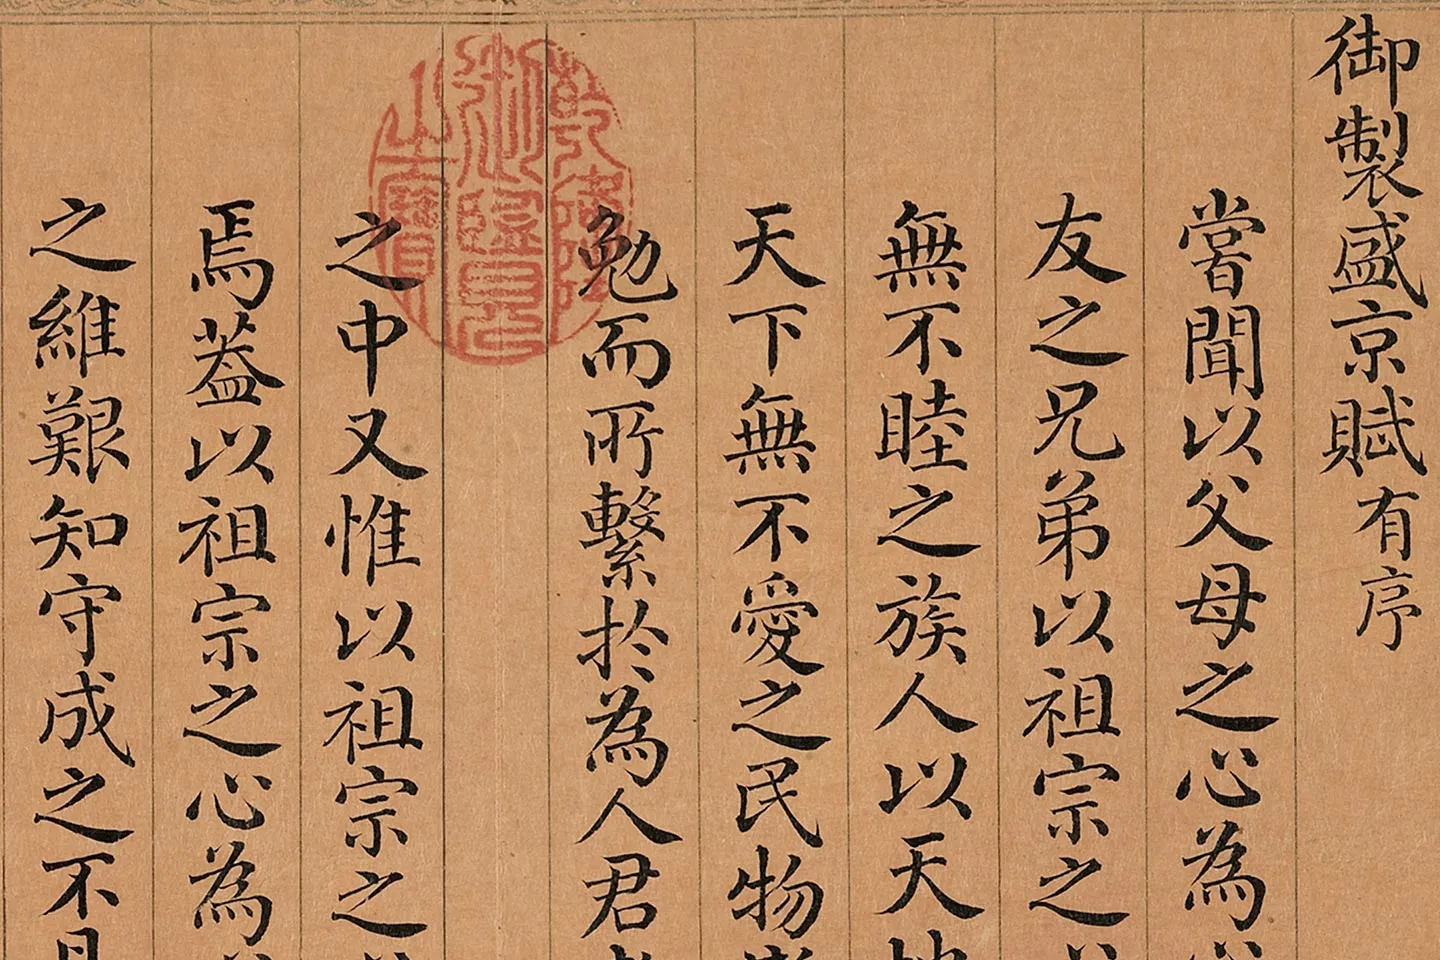 御製盛京賦有序
嘗聞以父母之心為
友之兄弟以祖宗之
無不睦之族人以天
天下無不愛之民物
勉而所繫於為人君
之中又惟以祖宗之
焉葢以祖宗之心為
之維艱知守成之不
乾隆御覽之寶